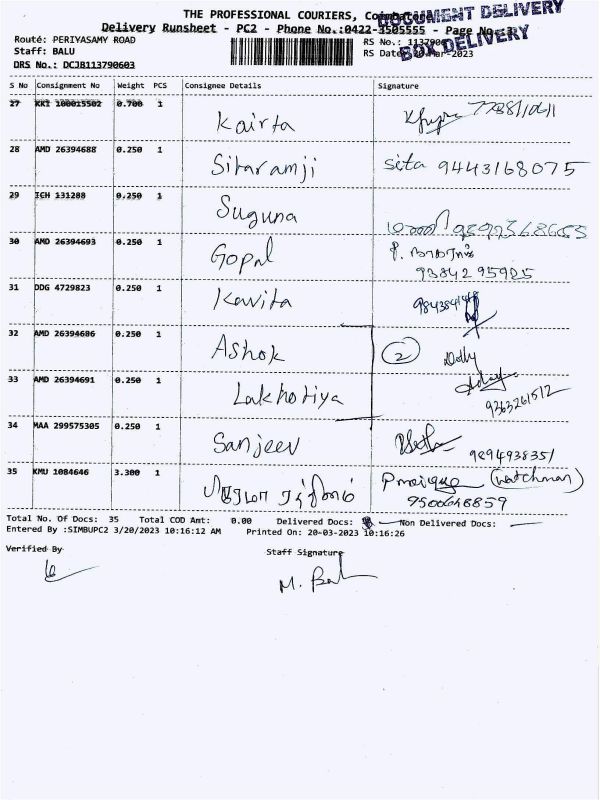 THE PROFESSIONAL COURIERS, Coimbatore
DOCUMENT DELIVERY
Delivery Runsheet - PC2 - Phone No.:0422-3505555 - Page No.
BOX DELIVERY
Route: PERIYASAMY ROAD
RS No.:
Staff: BALU
RS Date: 20-Mar-2023
DRS No.: DCJB113790603
S No Consignment No Weight PCS Consignee Details Signature
27 KKI 100015502 0.700 1 Kairta
28 AMD 26394688 0.250 1 Sitaramji sita 9443168075
29 ICH 131288 0.250 1 Suguna
30 AMD 26394693 0.250 1 Gopal
93842 95925
31 DDG 4729823 0.250 1 Kavita
32 AMD 26394686 0.250 1 Ashok 2 Dolly
33 AMD 26394691 0.250 1 Lakhotiya
9363261512
34 MAA 299575305 0.250 1 Sanjeev
9894938351
35 KMU 1084646 3.300 1 (watchman)
9500648859
Total No. Of Docs: 35 Total COD Amt: 0.00 Delivered Docs: Non Delivered Docs:
Entered By :SIMBUPC2 3/20/2023 10:16:12 AM Printed On: 20-03-2023 10:16:26
Verified By Staff Signature
M. Bal